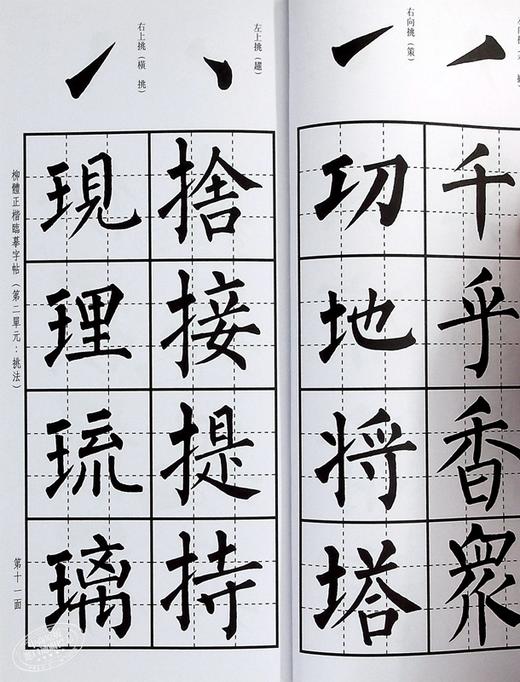 千乎香衆
右向挑（策）
功地将塔
左上挑（趯）
捨接提持
右上挑（橫 挑）
現理琉璃
柳體正楷臨摹字帖（第二單元：挑法）
第十一面